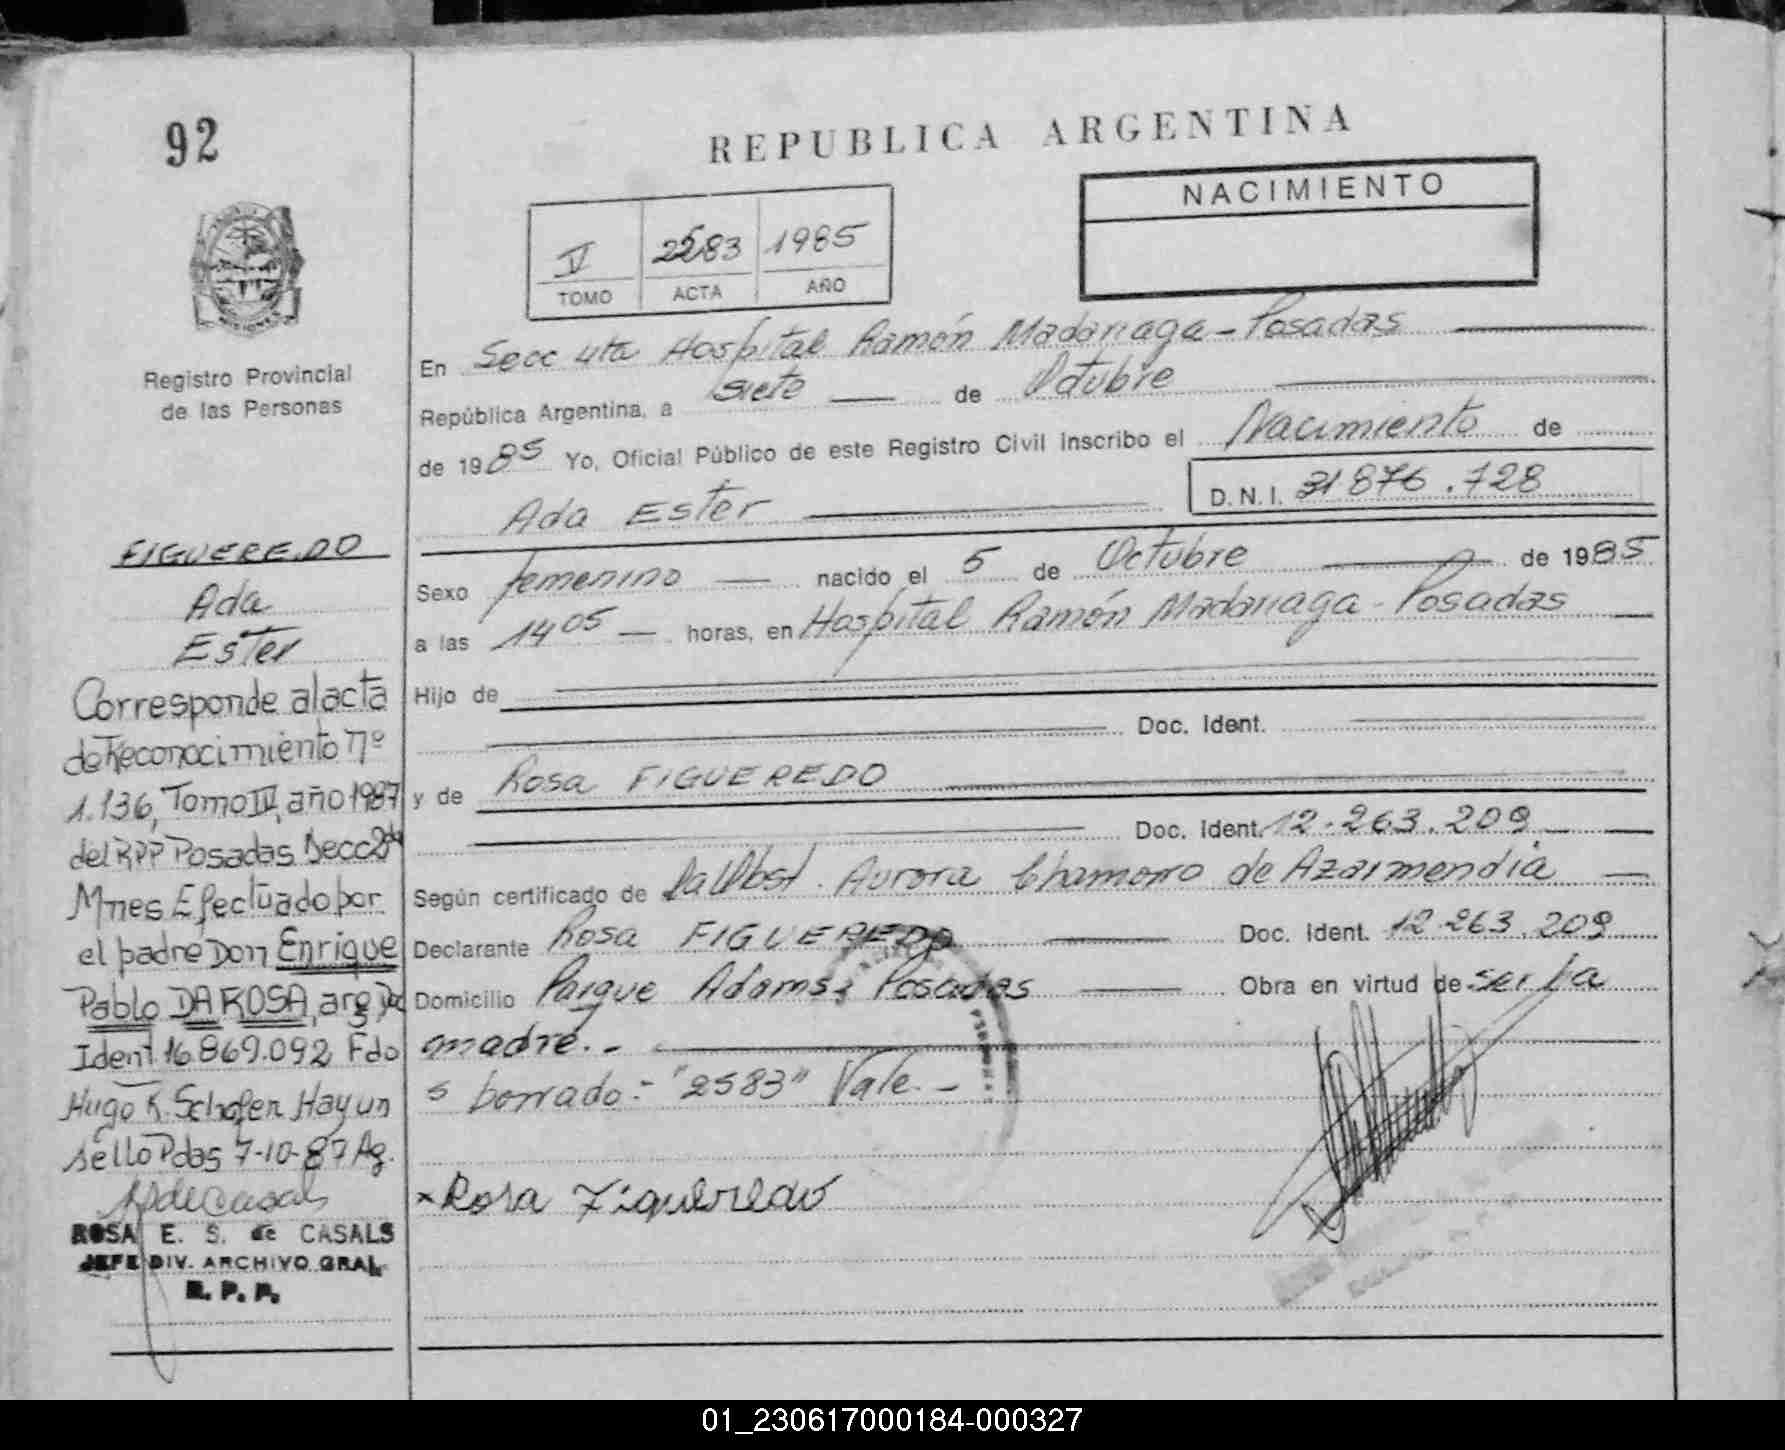 92
REPUBLICA ARGENTINA
NACIMIENTO
V 2583 1985
TOMO ACTA AÑO
Registro Provincial
de las Personas
En Secc 4ta Hospital Ramón Madariaga - Posadas
República Argentina, a siete de Octubre
de 1985 Yo, Oficial Público de este Registro Civil Inscribo el Nacimiento de
Ada Ester D.N.I. 31876.728
Sexo femenino nacido el 5 de Octubre de 1985
a las 14 05 horas, en Hospital Ramón Madariaga - Posadas
Hijo de
Doc. Ident.
y de Rosa FIGUEREDO
Doc. Ident. 12.263.209
Según certificado de la Obst. Aurora Chamorro de Azarmendia
Declarante Rosa FIGUEREDO Doc. Ident. 12.263.209
Domicilio Parque Adams; Posadas Obra en virtud de ser la
madre.-
s borrado:- "2583" Vale.-
x Rosa Figueredo
FIGUEREDO
Ada
Ester
Corresponde al acta
de Reconocimiento nº
1.136, Tomo III, año 1987
del RPP Posadas Secc 2da
Mnes Efectuado por
el padre Don Enrique
Pablo DA ROSA, arg
Ident 16.869.092 Fdo
Hugo R. Schafer Hay un
sello Pdas 7-10-87 Ag.
ROSA E. S. de CASALS
JEFE DIV. ARCHIVO GRAL.
R. P. P.
01_230617000184-000327